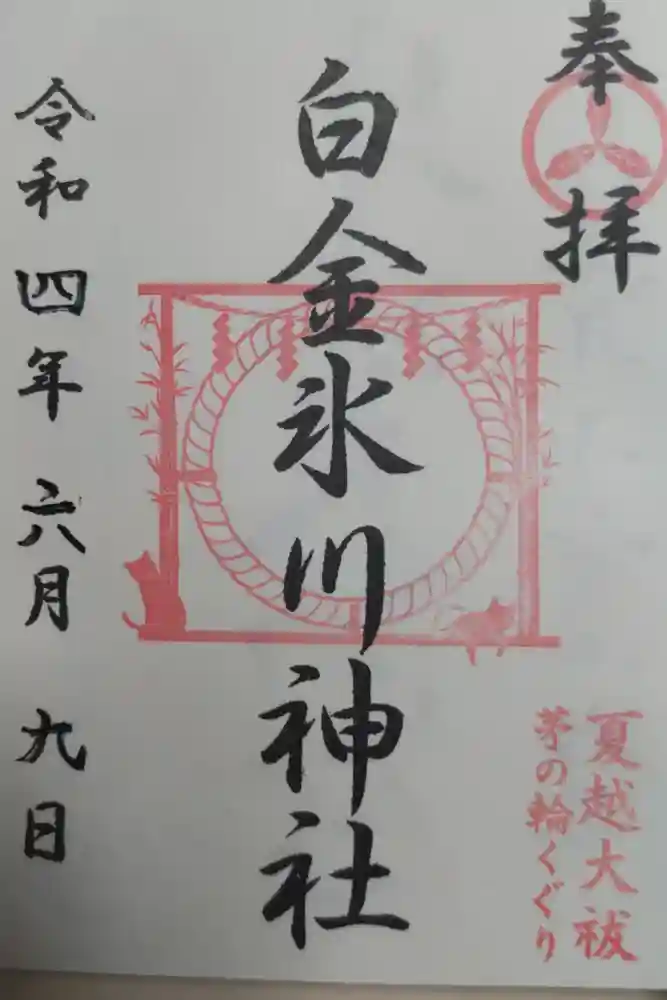 奉拝
夏越大祓
茅の輪くぐり
白金氷川神社
令和四年六月九日